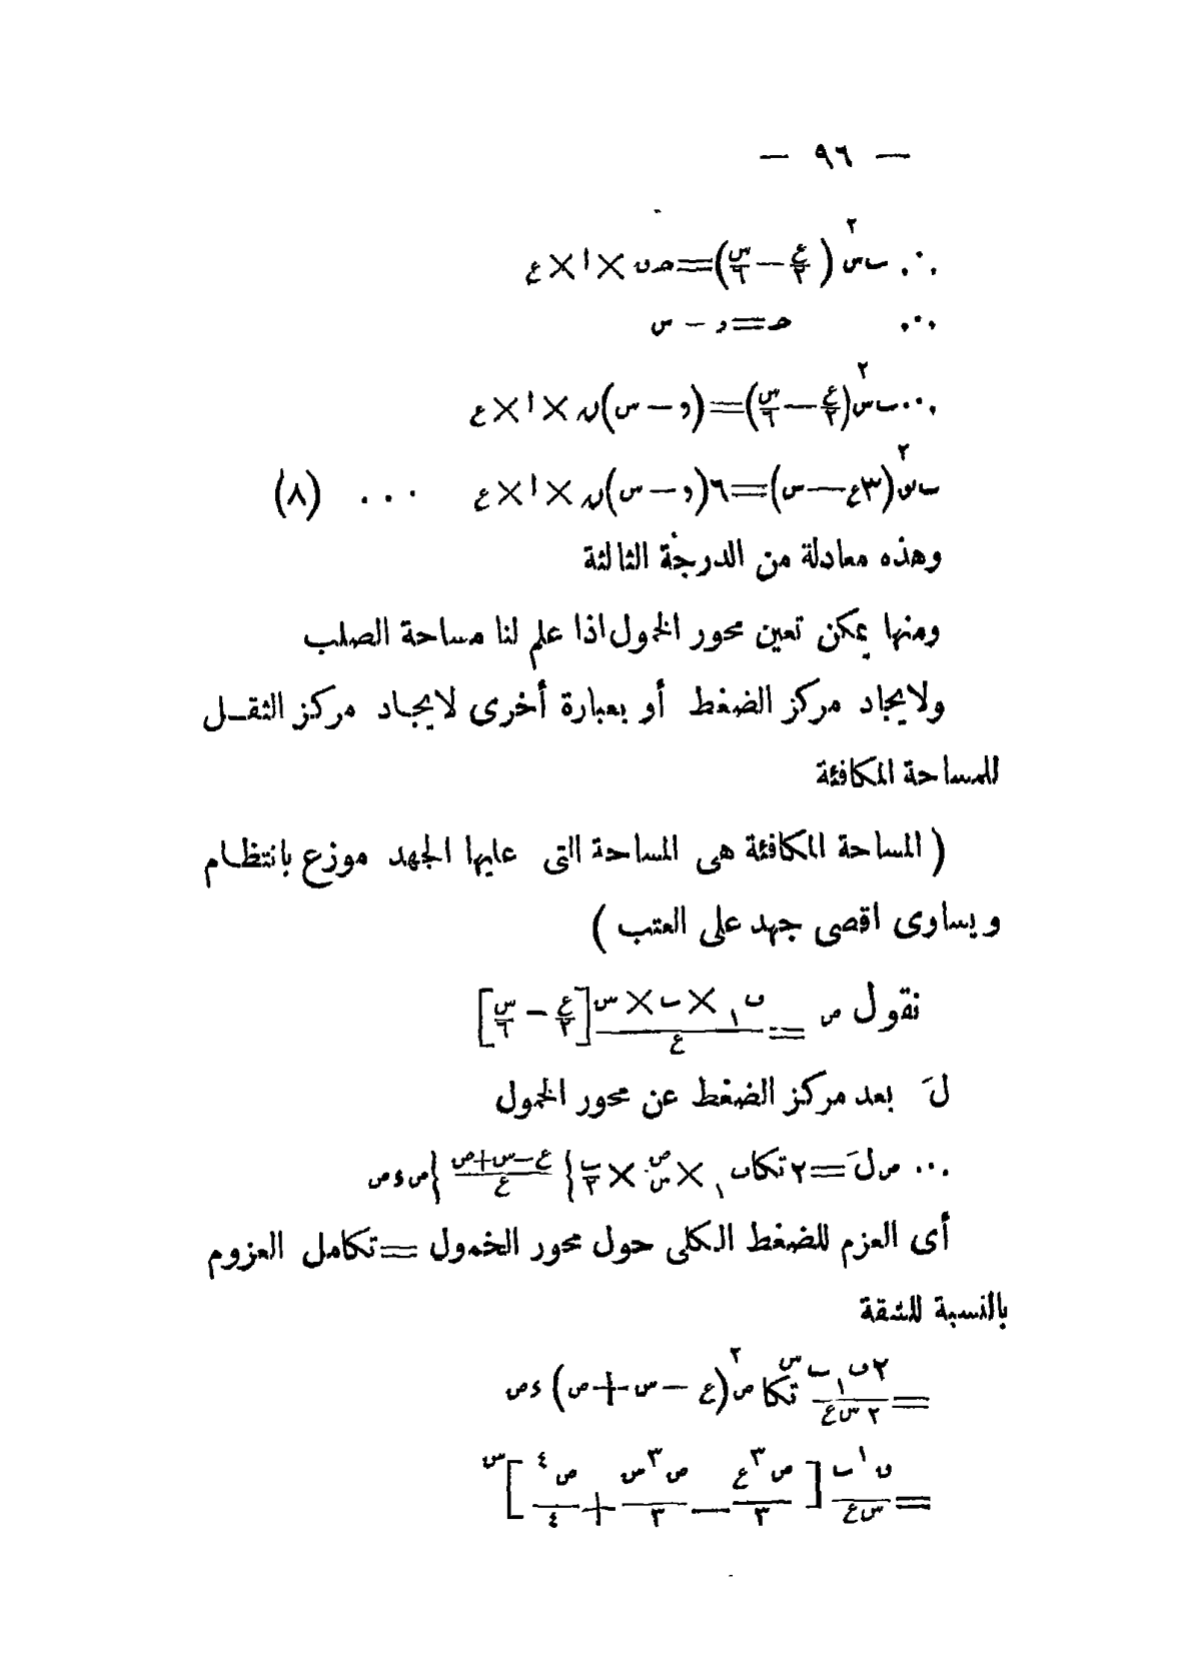 — ٩٦ —
∴ ب س٢ (ع/٢ — س/٦) = حـ ن × ا × ع
∵ حـ = د — س
∴ ب س٢ (ع/٢ — س/٦) = (د — س) ن × ا × ع
ب س٢ (٣ع — س) = ٦ (د — س) ن × ا × ع ... (٨)
وهذه معادلة من الدرجة الثالثة
ومنها يمكن تعين محور الخمول اذا علم لنا مساحة الصلب
ولايجاد مركز الضغط أو بعبارة أخرى لايجاد مركز الثقــل
للمساحة المكافئة
( المساحة المكافئة هى المساحة التى عليها الجهد موزع بانتظام
ويساوى اقصى جهد على العتب )
نقول ص = ف١ × ب × س/ع [ع/٢ — س/٦]
لَ بعد مركز الضغط عن محور الخمول
∴ ص لَ = ٢ تكا ف١ × ص/س × ب/٢ {ع—س+ص/ع} ص ء ص
أى العزم للضغط الكلى حول محور الخمول = تكامل العزوم
بالنسبة للشقة
= ٢ ف١ ب/٢ س ع تكا س ص٢ (ع — س + ص) ء ص
= ف١ ب/س ع [ص٣ ع/٣ — ص٣ س/٣ + ص٤/٤] س